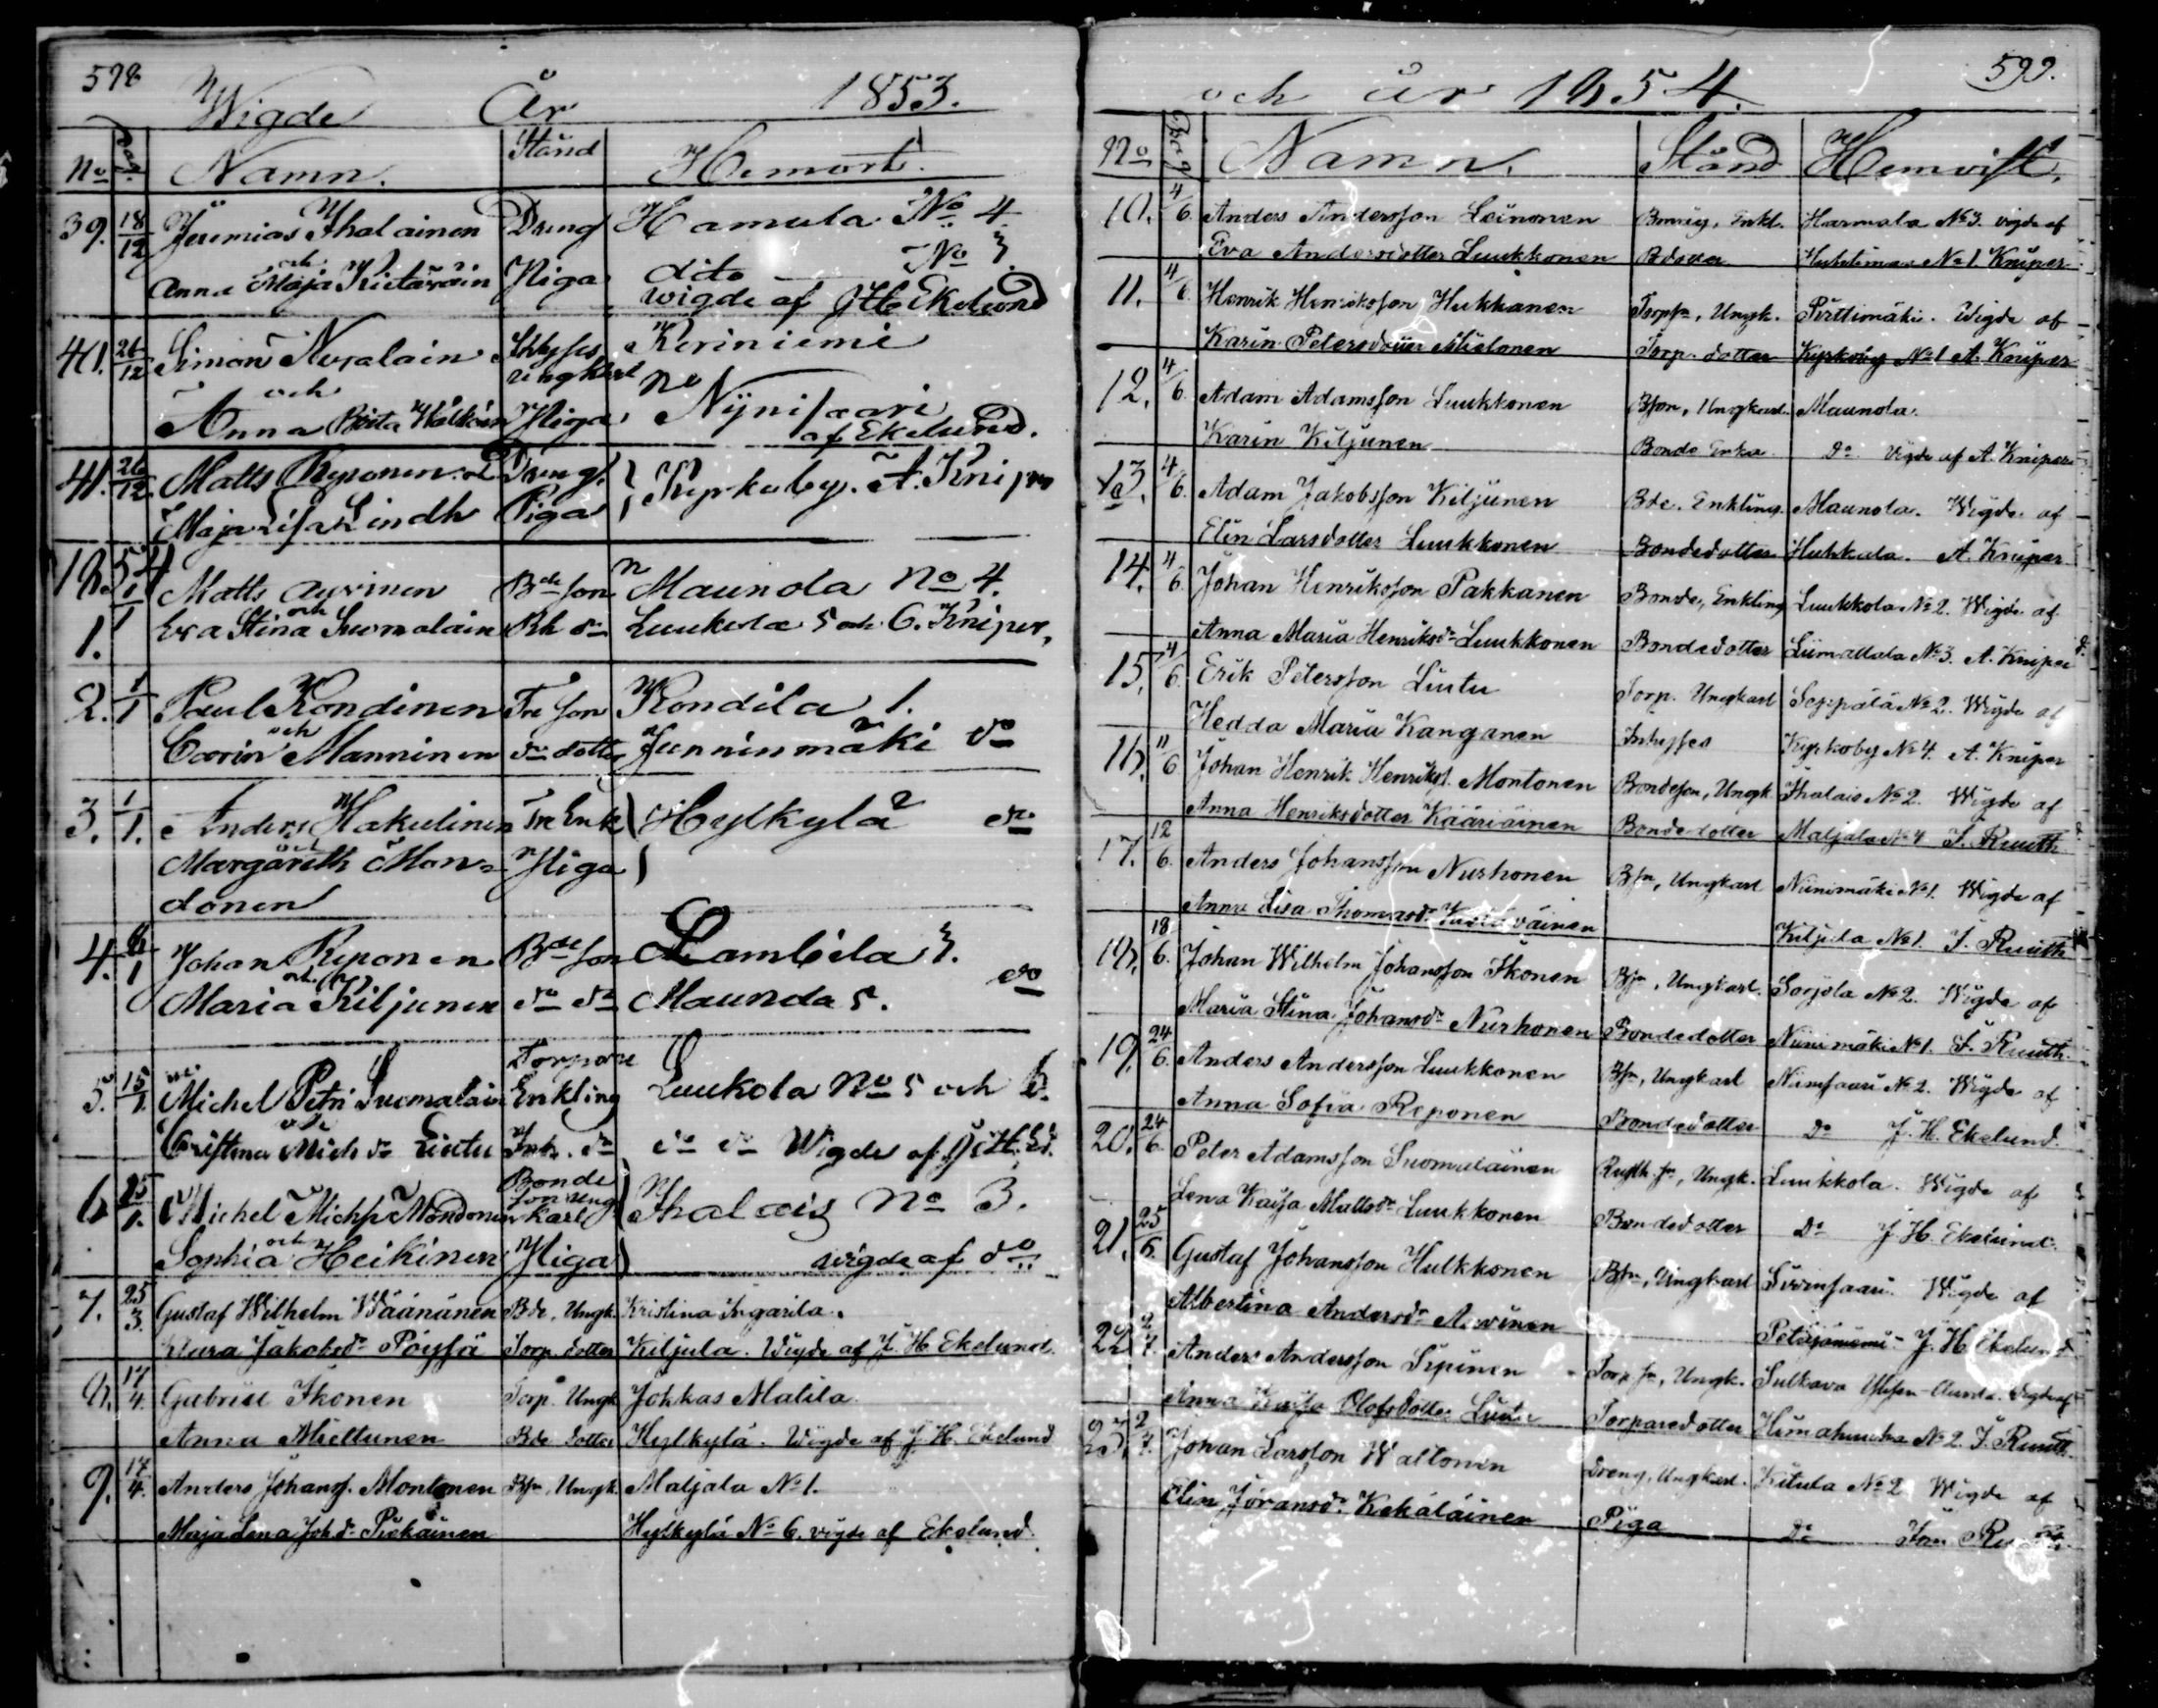 578
Wigde År 1853.
No Dag. Namn. Stånd Hemort.
39. 18/12 Jeremias Ihalainen Dreng Hamula No. 4
och
Anna Maja Kietäväin Piga dito No 3.
wigde af JH Ekelund
40. 26/12 Simon Nupalain Inhyses Kiriniemi
ungkarl
och
Anna Brita Hälkäin Piga Nijnisaari
af Ekelund.
41. 26/12. Matts Reponen Dreng. Kyrkoby. A. Kniper
Maja Lisa Lindh Piga
1854
1. 1/1 Matts Auvinen Bde son Maunola No 4.
och
Eva Stina Suomalain Rh dr Luukola 5 och 6. Kniper.
2. 1/1 Paul Kondinen Tre son Kondila 1.
och
Carin Manninen dr dotter Junninmäki do
3. 1/1. Anders Hakulinen Tre Enk Hylkylä do
och
Margareth Mon- Piga
donen
4. 6/1 Johan Reponen Bde son Lambila 3.
och
Maria Kiljunen do dr Maunola 5. do
Torpare
5. 15/1. Michel Petri Suomalain Enkling Luukola No 5 och 6.
och
Cristina Mich dr Liutu Inh. dr do do Wigde af JH. Ed.
Bonde
6 25/1. Michel Michs. Mondonen son Ungkarl Ihalais No 3.
och
Sophia Heikinen Piga wigde af do
7. 25/3. Gustaf Wilhelm Wäänänen Bde. Ungk. Kristina Ingarila.
Klara Jakobsdr Pöyhä Torp. dotter Kiljula. Wigde af J. H. Ekelund.
8. 17/4. Gabriel Ikonen Torp. Ungk. Johkas Malila.
Anna Miettunen Bde dotter Hylkylä. Wigde af J. H. Ekelund
9. 17/4. Anders Johanss. Montonen Bsn. Ungk. Maljala No 1.
Maja Lena Joh dr Piskainen Hylkylä No 6. vigde af Ekelund.
och år 1854. 599.
No Dag Namn. Stånd Hemvist.
10. 4/6. Anders Andersson Leinonen Enkl. Harmala No 3. vigde af
Eva Andersdotter Luukkonen Bdotter No 1 Kniper
11. 4/6. Henrik Henriksson Hukkanen Torpsn, Ungk. Pirttimäki. Wigde af
Karin Petersdotter Mielonen Torp. dotter Kyrkoby No 1 A. Kniper
12. 4/6. Adam Adamsson Luukkonen Bson, Ungkarl. Maunola.
Karin Kiljunen Bonde Enka Do Vigde af A. Kniper
13. 4/6. Adam Jakobsson Kiljunen Bde. Enkling. Maunola. Wigde af
Elin Larsdotter Luukkonen Bondedotter Huhkala. A. Kniper
14. 4/6. Johan Henriksson Pakkanen Bonde, Enkling Luukkola No 2. Wigde af
Anna Maria Henriksdr Luukkonen Bondedotter Liimattala No 3. A. Kniper
15. 4/6. Erik Petersson Liutu Torp. Ungkarl Seppälä No 2. Wigde af
Hedda Maria Kanganen Inhyses Kyrkoby No 4. A. Kniper
16. 11/6 Johan Henrik Henrikss. Montonen Bondeson, Ungk Ihalais No 2. Wigde af
Anna Henriksdotter Kääriäinen Bondedotter Maljala No 4 J. Ruuth
17. 12/6. Anders Johansson Nurhonen Bsn, Ungkarl Niinimäki No 1. Wigde af
Anna Lisa Thomasdr Kiljula No 1. J. Ruuth
18. 18/6. Johan Wilhelm Johansson Ikonen Bsn, Ungkarl. Sorjola No 2. Wigde af
Maria Stina Johansdr Nurhonen Bondedotter Niinimäki No 1. J. Ruuth.
19. 24/6. Anders Andersson Luukkonen Bsn, Ungkarl Niinisaari No 2. Wigde af
Anna Sofia Reponen Bondedotter Do J. H. Ekelund.
20. 24/6. Peter Adamsson Suomalainen Rusth. sn, Ungk. Luukkola. Wigde af
Lena Kaisa Mattsdr Luukkonen Bondedotter Do J. H. Ekelund.
21. 25/6. Gustaf Johansson Hulkkonen Bsn, Ungkarl Wigde af
Albertina Andersdr Auvinen Petäjäniemi. J. H. Ekelund
22. 2/7. Anders Andersson Sipinen Torp. sn, Ungk. Sulkava Wigde af
Anna Kaisa Olofsdotter Liutu Torparedotter No 2. J. Ruuth.
23. 2/7. Johan Larsson Waltonen Dreng, Ungkarl. Kitula No 2 Wigde af
Elin Göransdr. Kekäläinen Piga Do